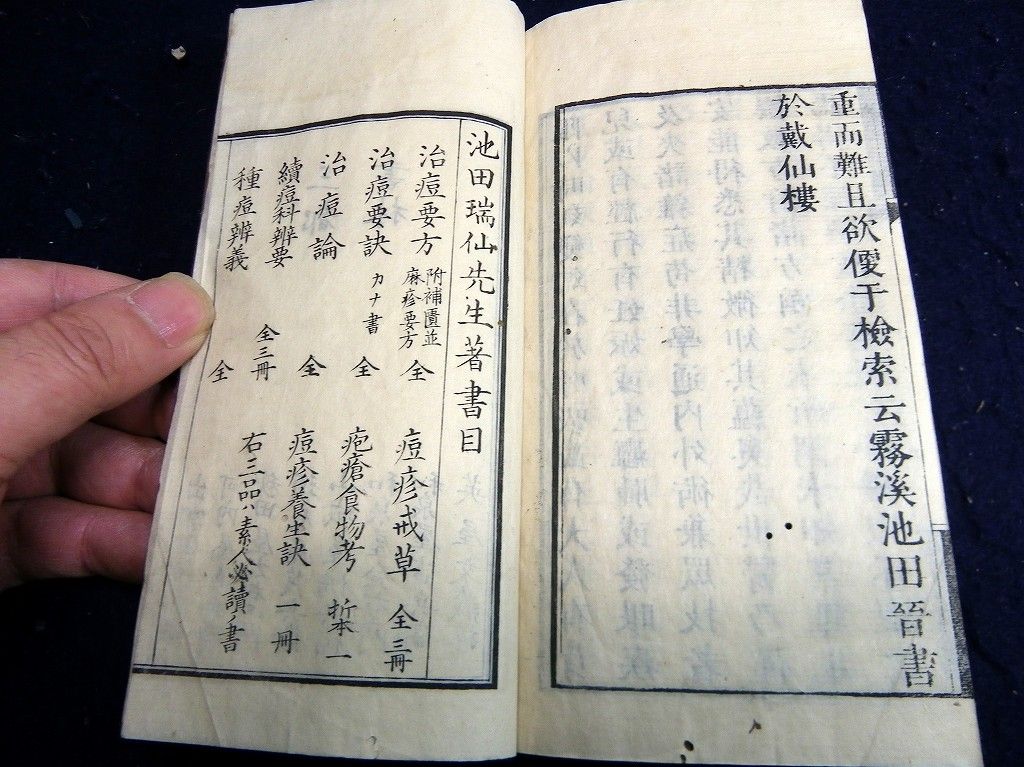 重而難且欲優于檢索云霧溪池田晉書
於戴仙樓
池田瑞仙先生著書目
治痘要方 附補匱並麻疹要方 全
治痘要訣 カナ書 全
治痘論 全
續痘科辨要 全三冊
種痘辨義 全
痘疹戒草 全三冊
疱瘡食物考 折本一
痘疹養生訣 一冊
右三品ハ素人必讀ノ書